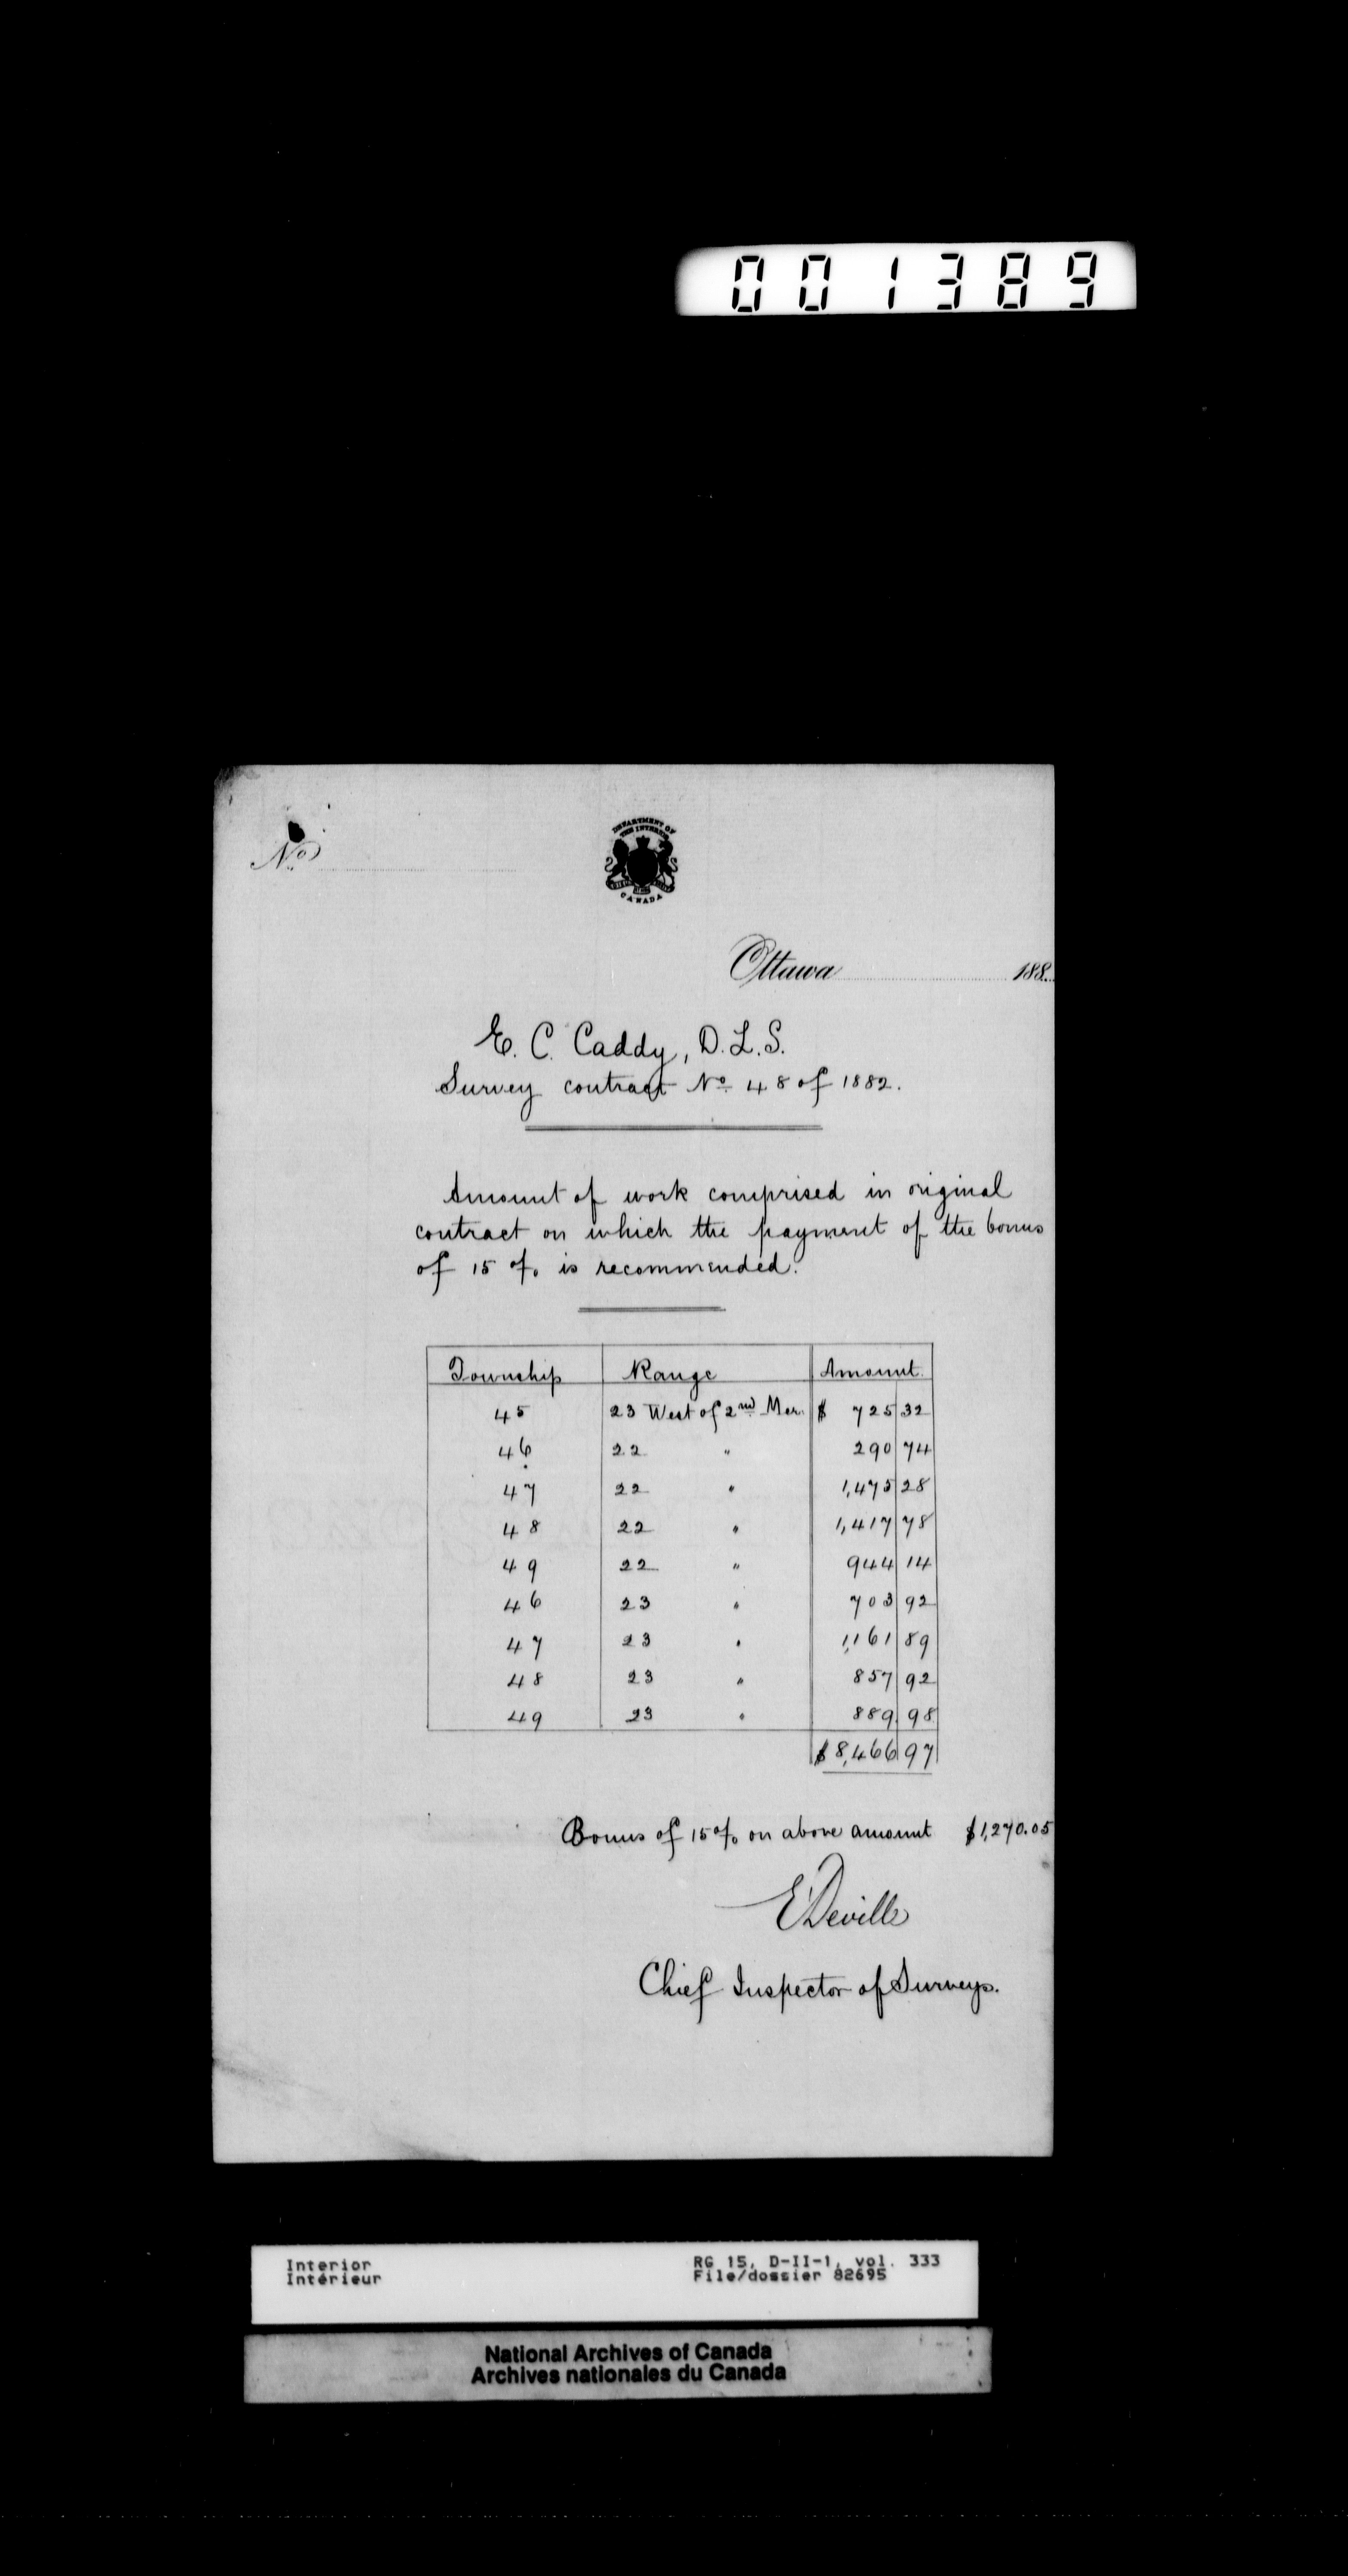 001389
No
DEPARTMENT OF
THE INTERIOR
CANADA
Ottawa 188
E. C. Caddy, D.L.S.
Survey contract No 48 of 1882.
Amount of work comprised in original
contract on which the payment of the bonus
of 15 % is recommended.
Township Range Amount.
45 23 West of 2nd Mer. $ 725 32
46 22 " 290 74
47 22 " 1,475 28
48 22 " 1,417 78
49 22 " 944 14
46 23 " 703 92
47 23 " 1,161 89
48 23 " 857 92
49 23 " 889 98
$8,466 97
Bonus of 15% on above amount $1,270.05
E Deville
Chief Inspector of Surveys.
Interior RG 15, D-II-1, vol. 333
Intérieur File/dossier 82695
National Archives of Canada
Archives nationales du Canada